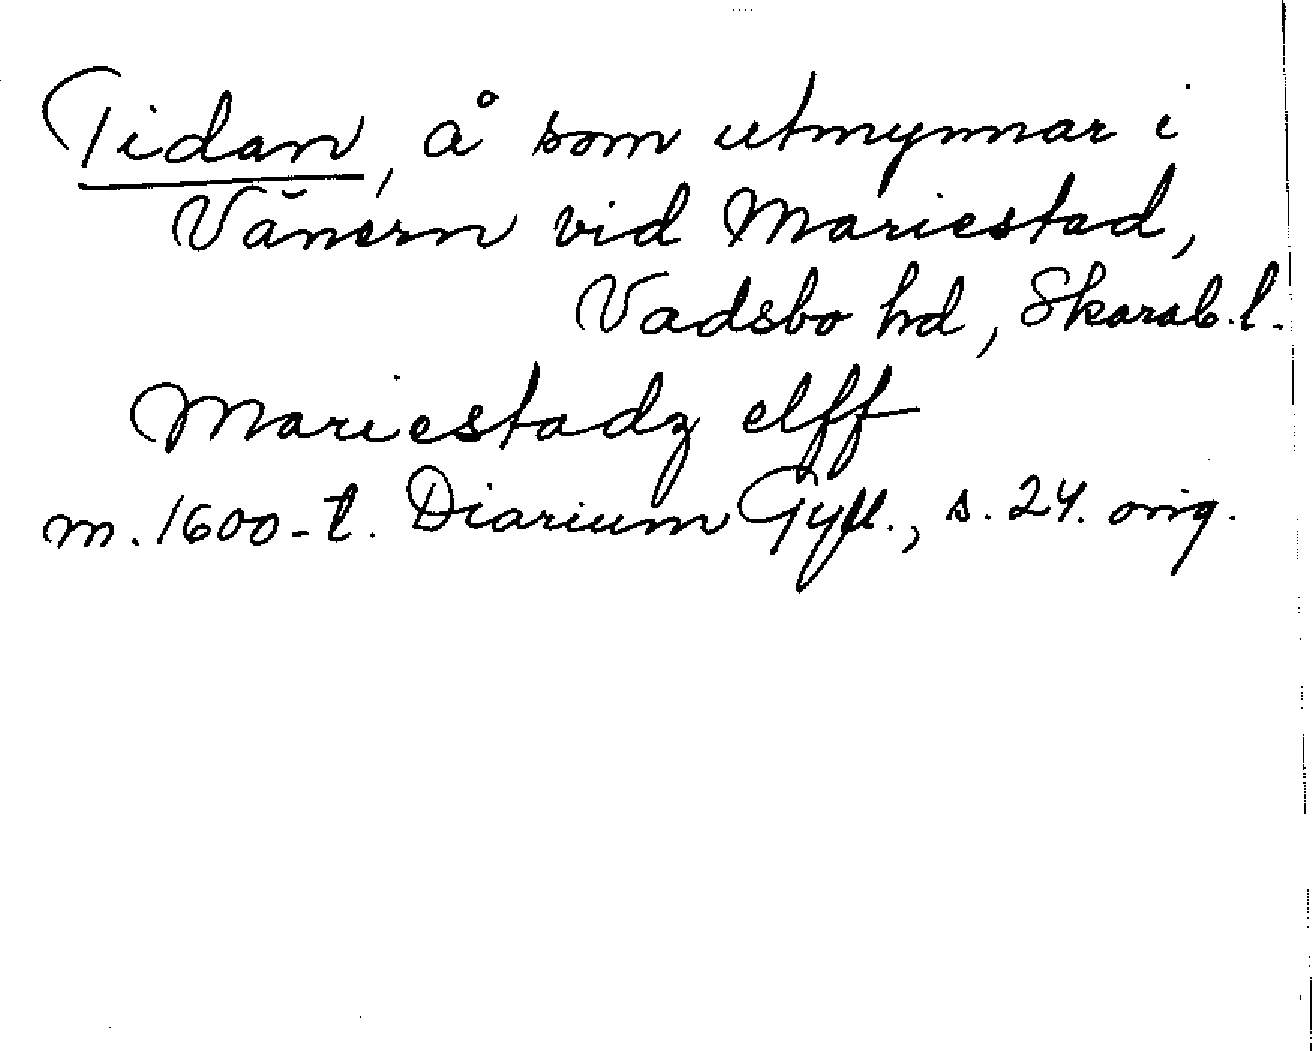 Tidan, å som utmynnar i
Vänern vid Mariestad,
Vadsbo hd, Skarab. l.
Mariestadz elff
m. 1600-t. Diarium Gyll., s. 24. orig.